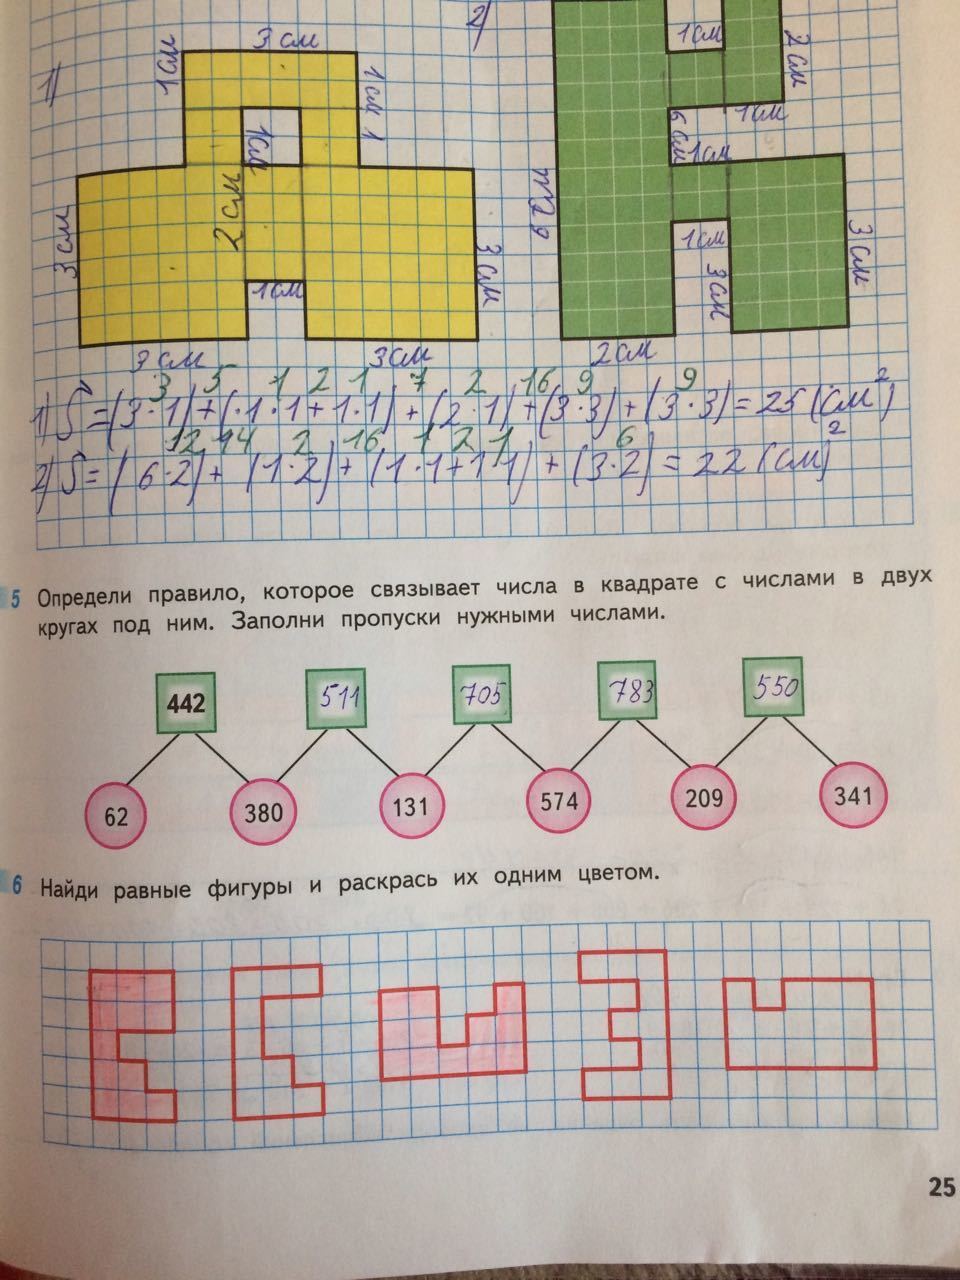 2)
1)
3 см
1 см
1 см 1
1 см
2 см
3 см
3 см
1 см
3 см
3 см
1 см
2 см
1 см
6 см
1 см
1 см
3 см
3 см
2 см
3 5 1 2 1 7 2 16 9 9
1) S = (3·1)+(·1·1+1·1)+(2·1)+(3·3)+(3·3)=25(см²)
12 14 2 16 1 2 1 6
2) S = (6·2)+(1·2)+(1·1+1·1)+(3·2)=22(см)²
5 Определи правило, которое связывает числа в квадрате с числами в двух
кругах под ним. Заполни пропуски нужными числами.
442 511 705 783 550
62 380 131 574 209 341
6 Найди равные фигуры и раскрась их одним цветом.
25